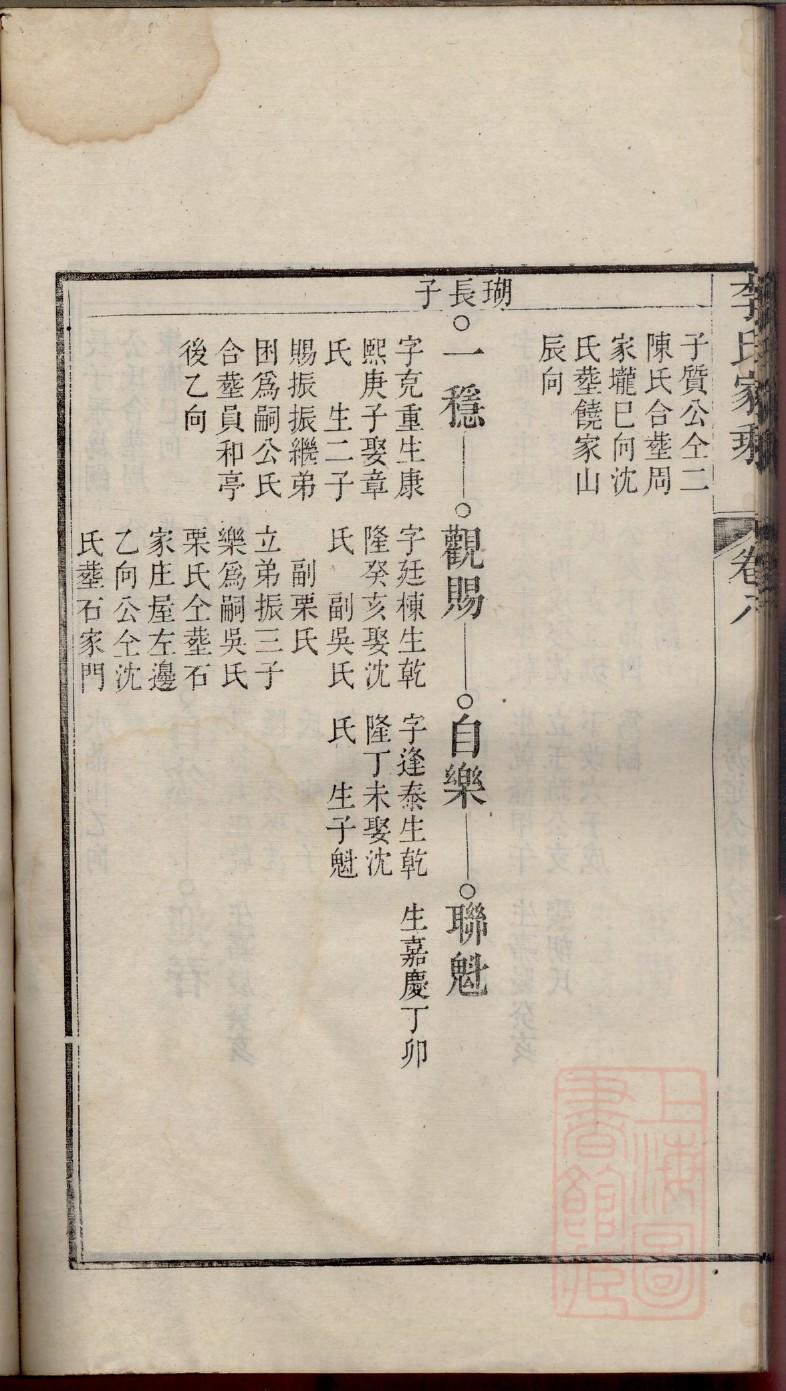 李氏家乘
卷六
子質公仝二
陳氏合塟周
家壠巳向沈
氏塟饒家山
辰向
瑚長子
一穩
觀賜
自樂
聯魁
字克重生康
熙庚子娶章
氏 生二子
賜振振繼弟
困爲嗣公氏
合塟員和亭
後乙向
字廷棟生乾
隆癸亥娶沈
氏 副吳氏
副栗氏
立弟振三子
樂爲嗣吳氏
栗氏仝塟石
家庄屋左邊
乙向公仝沈
氏塟石家門
字逢泰生乾
隆丁未娶沈
氏 生子魁
生嘉慶丁卯
上海圖
書館藏